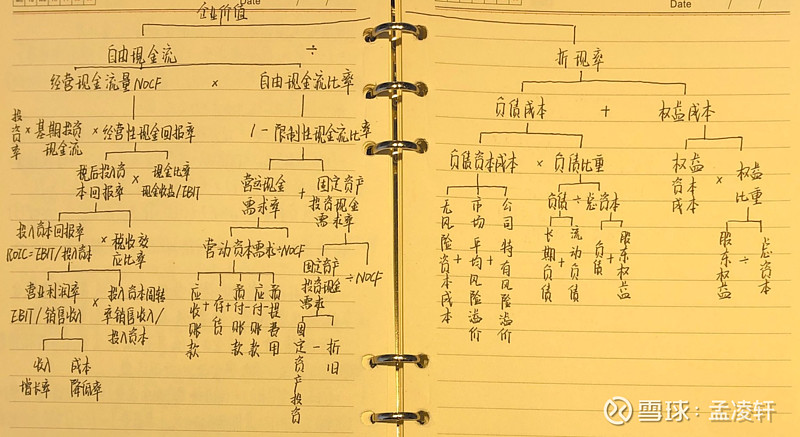 Date
Date
企业价值
自由现金流 ÷ 折现率
经营现金流量NOCF × 自由现金流比率
投资率 × 基期投资现金流 × 经营性现金回报率
1-限制性现金流比率
税后投入资本回报率 × 现金比率 现金收益/EBIT
营运现金需求率 + 固定资产投资现金需求率
投入资本回报率 ROIC=EBIT/投入资本 × 税收效应比率
营动资本需求÷NOCF
固定资产投资现金需求 ÷NOCF
营业利润率 EBIT/销售收入 × 投入资本周转率销售收入/投入资本
应收账款 + 存货 + 预付账款 - 应付账款 - 预提费用
固定资产投资 - 折旧
收入增长率 成本降低率
负债成本 + 权益成本
负债资本成本 × 负债比重
权益资本成本 × 权益比重
无风险资本成本 + 市场平均风险溢价 + 公司特有风险溢价
负债 ÷ 总资本
长期负债 + 流动负债
负债 + 股东权益
股东权益 ÷ 总资本
雪球:孟凌轩